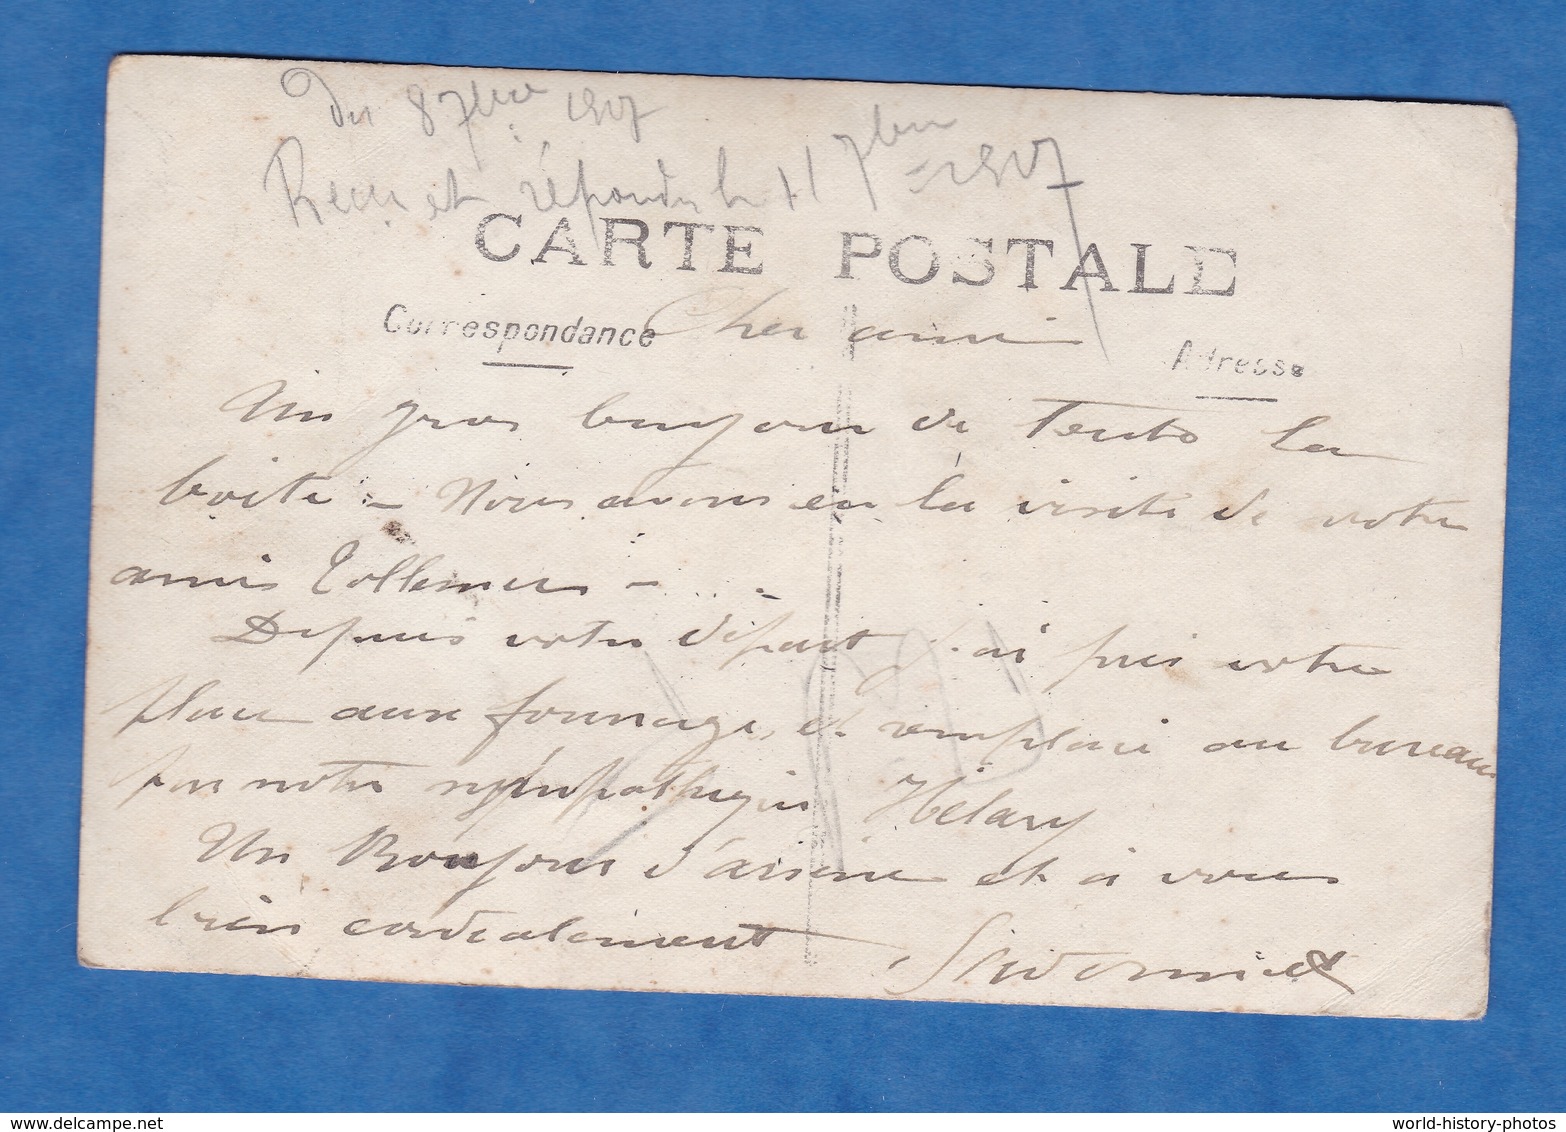 Du 8 7bre 1907
Recu et répondu le 11 7bre 1907
CARTE POSTALE
Correspondance
Adresse
Cher ami
Un gros bonjour de toute la
boite - Nous avons eu la visite de votre
amis Tollemer -
Depuis votre départ j'ai pris votre
place aux fourrage, et remplacé au bureau
par notre sympathique Hélary
Un Bonjour d'assine et à vous
bien cordialement
world-history-photos
www.delcampe.net